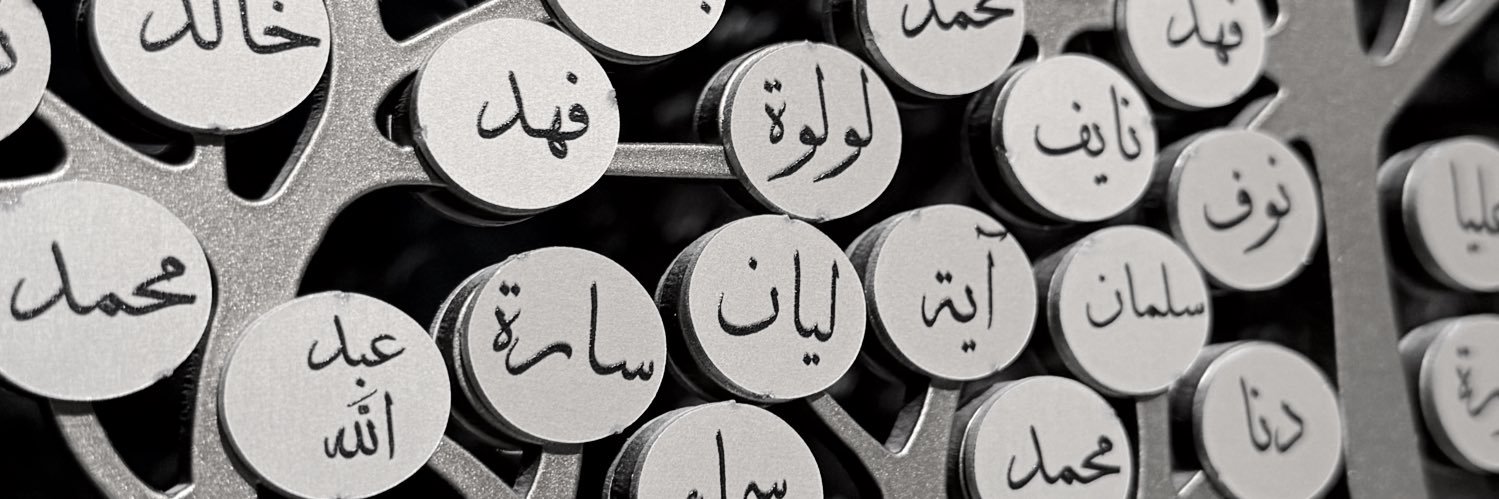 خالد
فهد
لولوة
محمد
فهد
نايف
نوف
محمد
عبد
الله
سارة
ليان
آية
سلمان
محمد
دنا